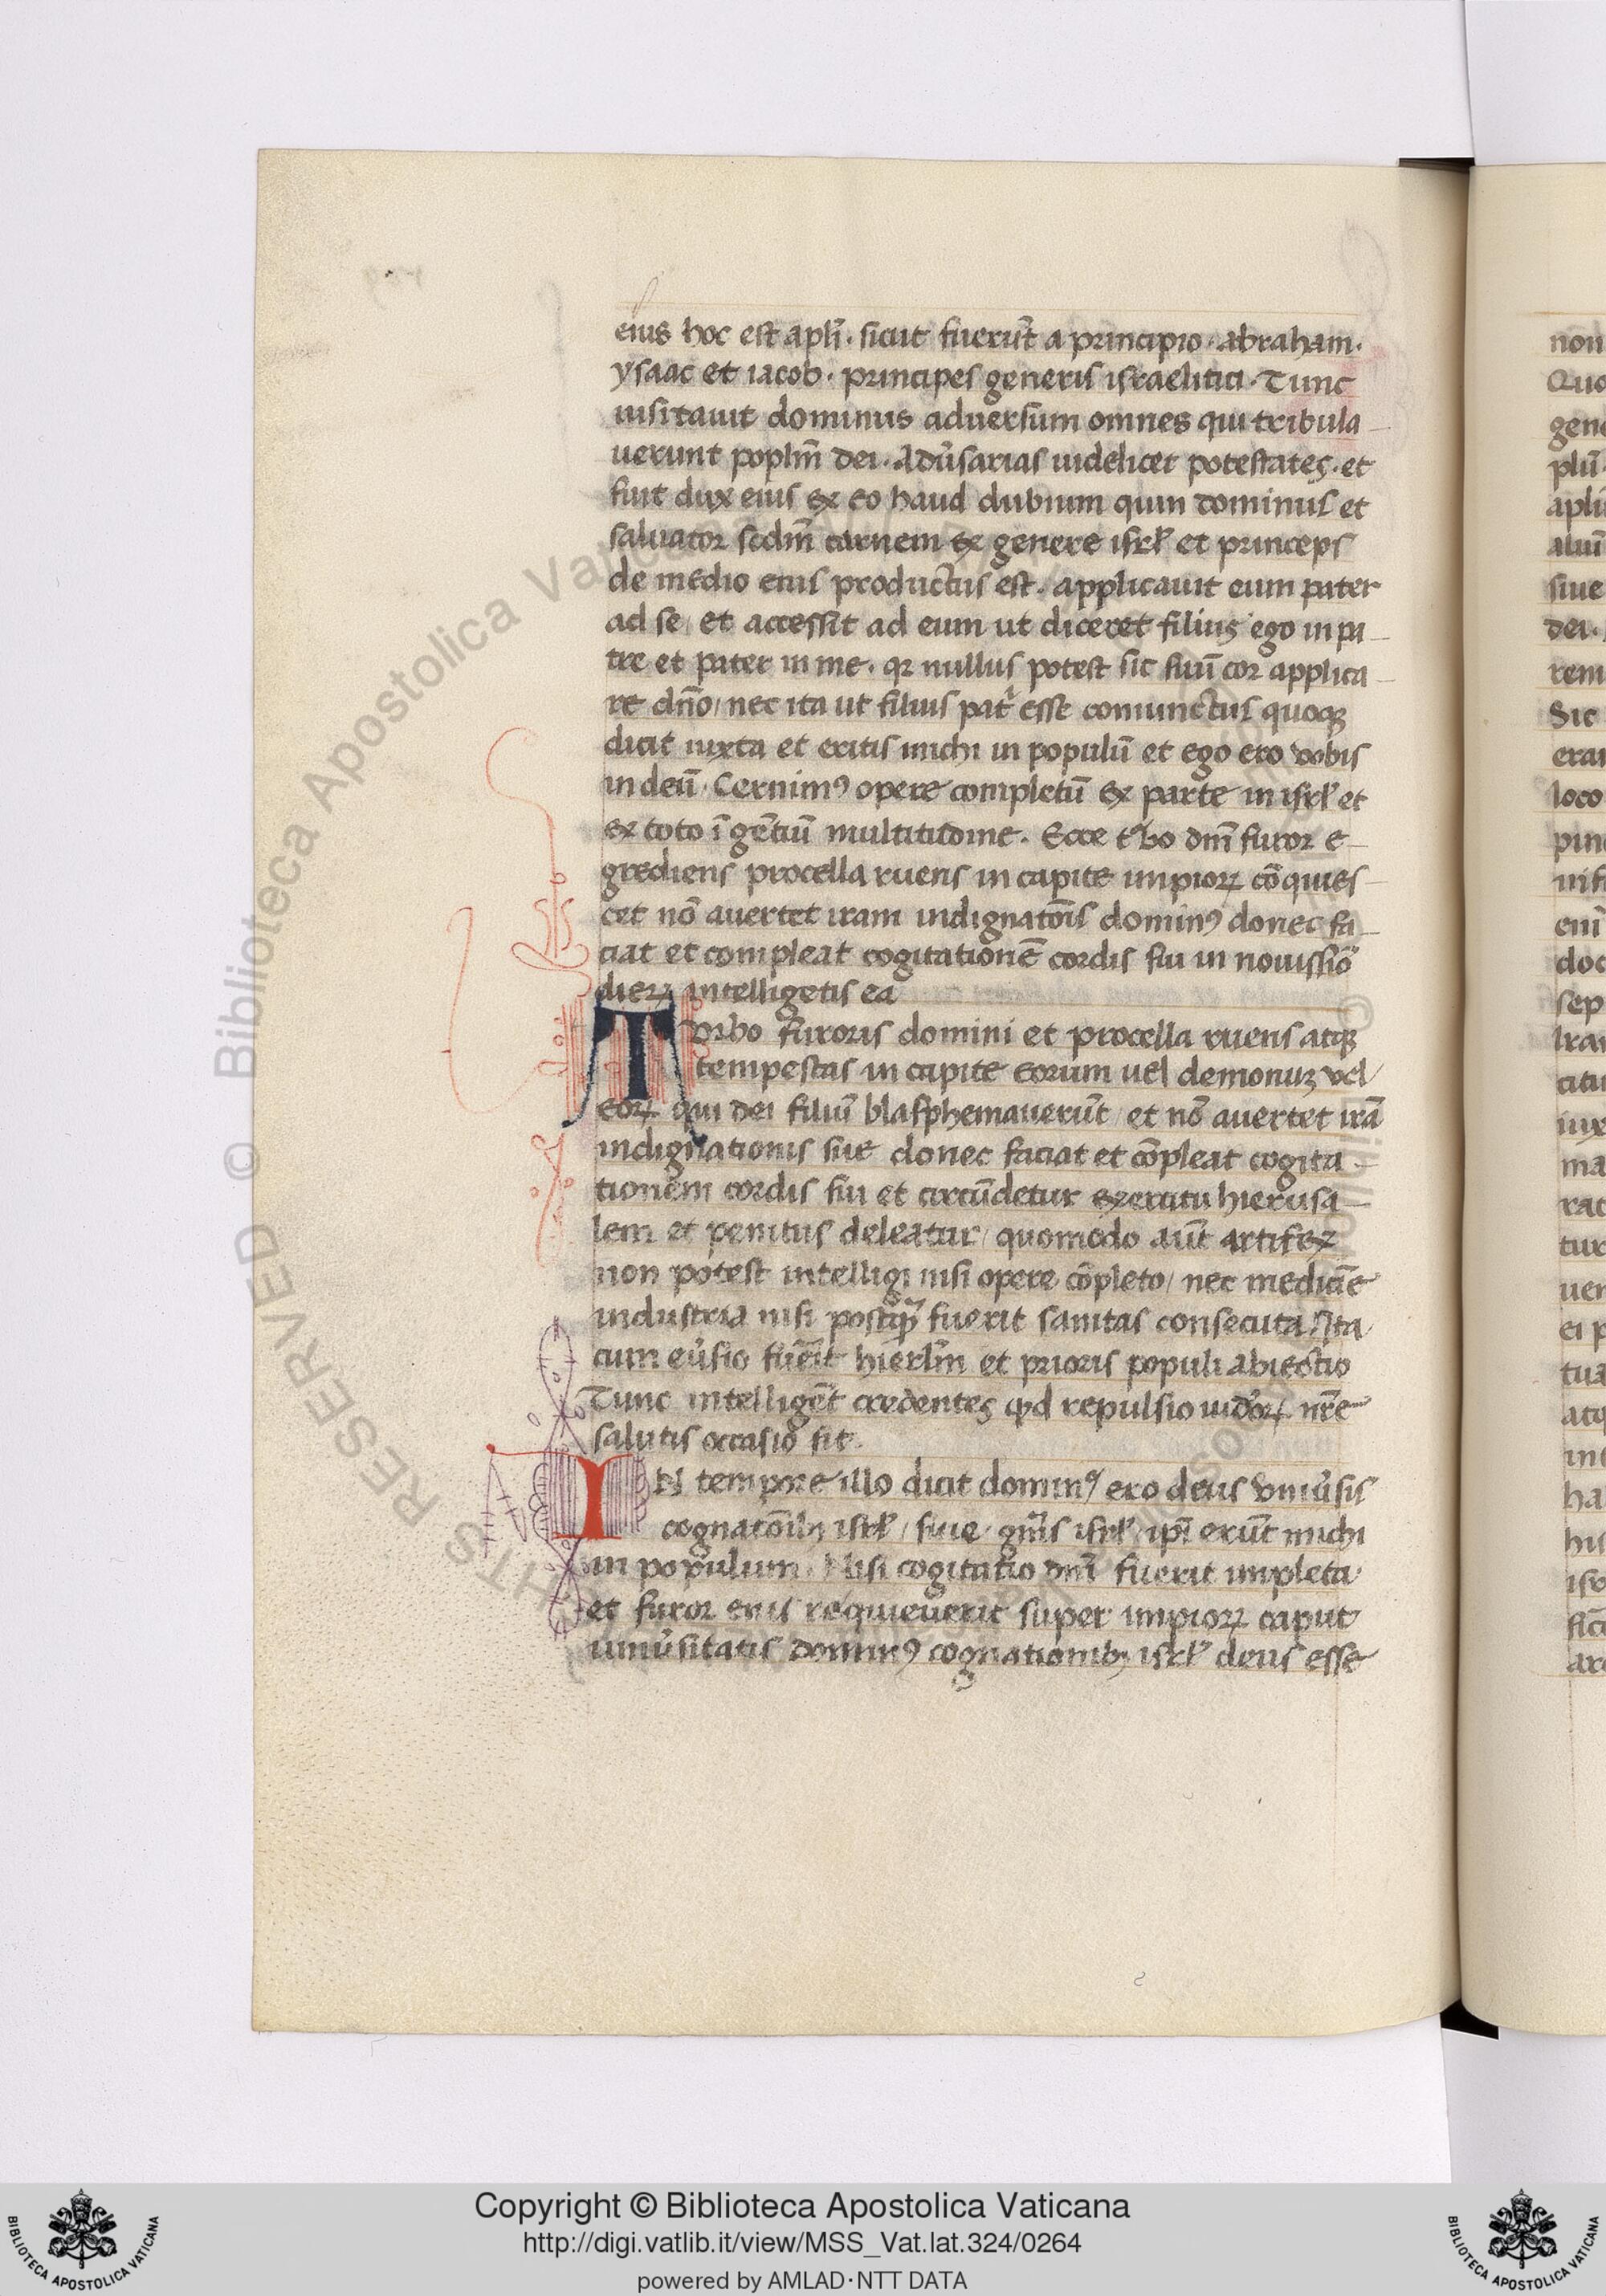 eius hoc est apłi. sicut fuerūt a principio. abraham.
ysaac et iacob. principes generis israelitici. Tunc
uisitauit dominus aduersum omnes qui tribula
uerunt poplm̄ dei. Adůsarias uidelicet potestates. et
fuit dux eius ex eo haud dubium quin dominus et
saluator scdm̄ carnem ex genere isrł et princeps
de medio eius productus est. applicauit eum pater
ad se, et accessit ad eum ut diceret filius ego in pa
tre et pater in me. qꝛ nullus potest sic suū cor applica
re dn̄o, nec ita ut filius patͥ esse coniunctus quoqꝫ
dicit iuxta et eritis michi in populū et ego ero vobis
in deū. Cernimꝰ opere completū ex parte in isrł et
ex toto ī gētiū multitudine. Ecce tᵘbo dn̄i furor e
grediens procella ruens in capite impioꝝ cōquies
cet nō auertet iram indignatōis dominꝰ donec fa
ciat et compleat cogitationē cordis sui in nouissīo
dieꝝ intelligetis ea
Turbo furoris domini et procella ruens atqꝫ
tempestas in capite eorum uel demonuꝫ vel
eoꝝ qui dei filiū blasphemauerūt et nō auertet irā
indignationis sue donec faciat et cōpleat cogita
tionem cordis sui et circūdetur exercitu hierusa
lem et penitus deleatur, quomodo aūt artifex
non potest intelligi nisi opere cōpleto, nec medicīe
industria nisi postqꝫ̄ fuerit sanitas consecuta. Ita
cum eůsio fuērit hierłm et prioris populi abiectio
Tunc intelligēt credentes qd repulsio iudeoꝝ nr̄e
salutis occasio sit.
IN tempore illo dicit dominꝰ ero deus vniůsis
cognatōibꝫ isrł, siue gn̄is isrł, ip̄i erūt michi
in populum. Nisi cogitatio dn̄i fuerit impleta
et furor eius requieuerit super impioꝝ caput
uniůsitatis dominꝰ cognationibꝫ isrł deus esse
non
Quo
gene
plū
apłi
aliū
siue
dei.
rem
Sic
erat
loco
enī
doc
sep
Copyright © Biblioteca Apostolica Vaticana
http://digi.vatlib.it/view/MSS_Vat.lat.324/0264
powered by AMLAD·NTT DATA
BIBLIOTECA APOSTOLICA VATICANA
BIBLIOTECA APOSTOLICA VATICANA